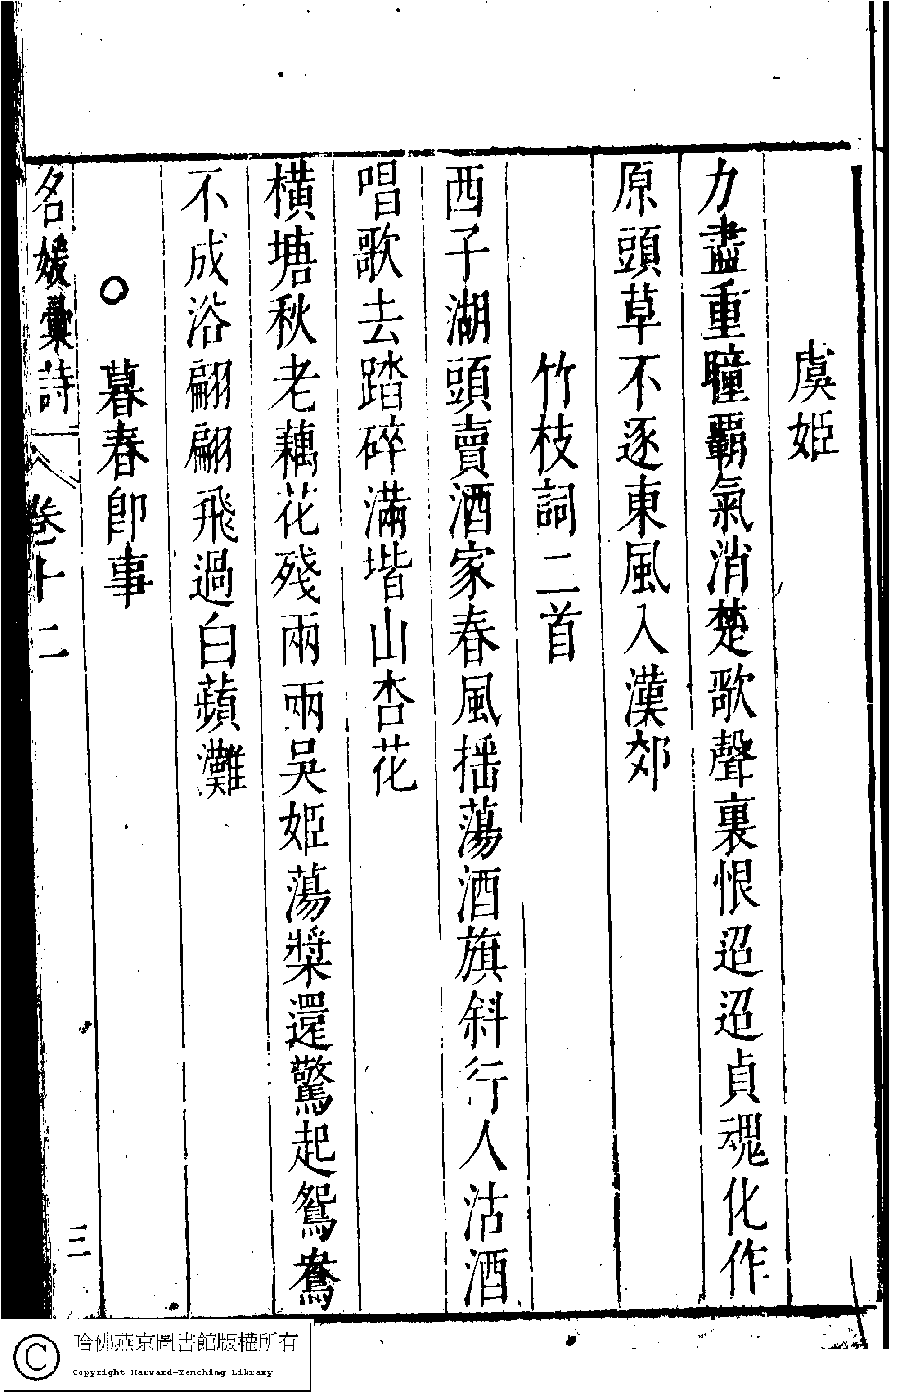 虞姬
力盡重瞳霸氣消楚歌聲裏恨迢迢貞魂化作
原頭草不逐東風入漢郊
竹枝詞二首
西子湖頭賣酒家春風搖蕩酒旗斜行人沽酒
唱歌去踏碎滿堦山杏花
橫塘秋老藕花殘兩兩吳姬蕩槳還驚起鴛鴦
不成浴翩翩飛過白蘋灘
○ 暮春卽事
名媛彙詩 卷十二 三
哈佛燕京圖書館版權所有
Copyright Harvard-Yenching Library